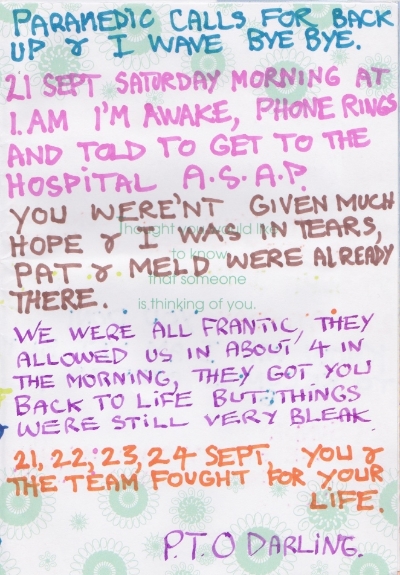 PARAMEDIC CALLS FOR BACK
UP & I WAVE BYE BYE.
21 SEPT SATURDAY MORNING AT
1.AM I'M AWAKE, PHONE RINGS
AND TOLD TO GET TO THE
HOSPITAL A.S.A.P.
YOU WERE'NT GIVEN MUCH
Thought you would like
HOPE & I WAS IN TEARS,
to know
PAT & MELD WERE ALREADY
that someone
THERE.
is thinking of you.
WE WERE ALL FRANTIC, THEY
ALLOWED US IN ABOUT 4 IN
THE MORNING, THEY GOT YOU
BACK TO LIFE BUT THINGS
WERE STILL VERY BLEAK
21, 22, 23, 24 SEPT, YOU &
THE TEAM FOUGHT FOR YOUR
LIFE.
P.T.O DARLING.